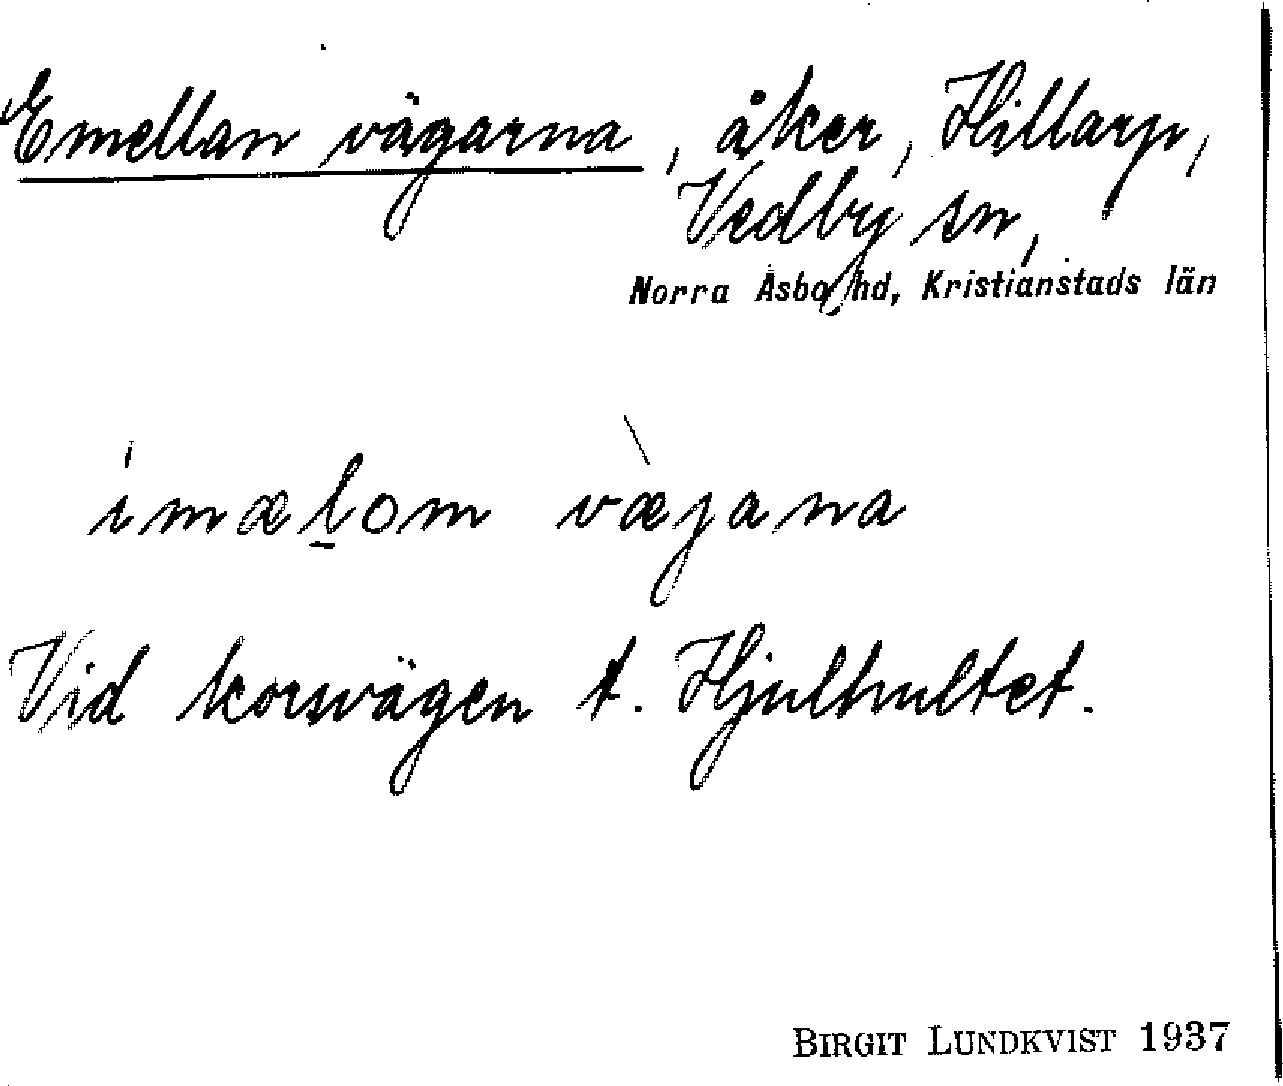 Emellan vägarna, åker, Hillarp,
Vedby sn,
Norra Åsbo hd, Kristianstads län
imælom væjana
Vid korsvägen t. Hjulhultet.
BIRGIT LUNDKVIST 1937